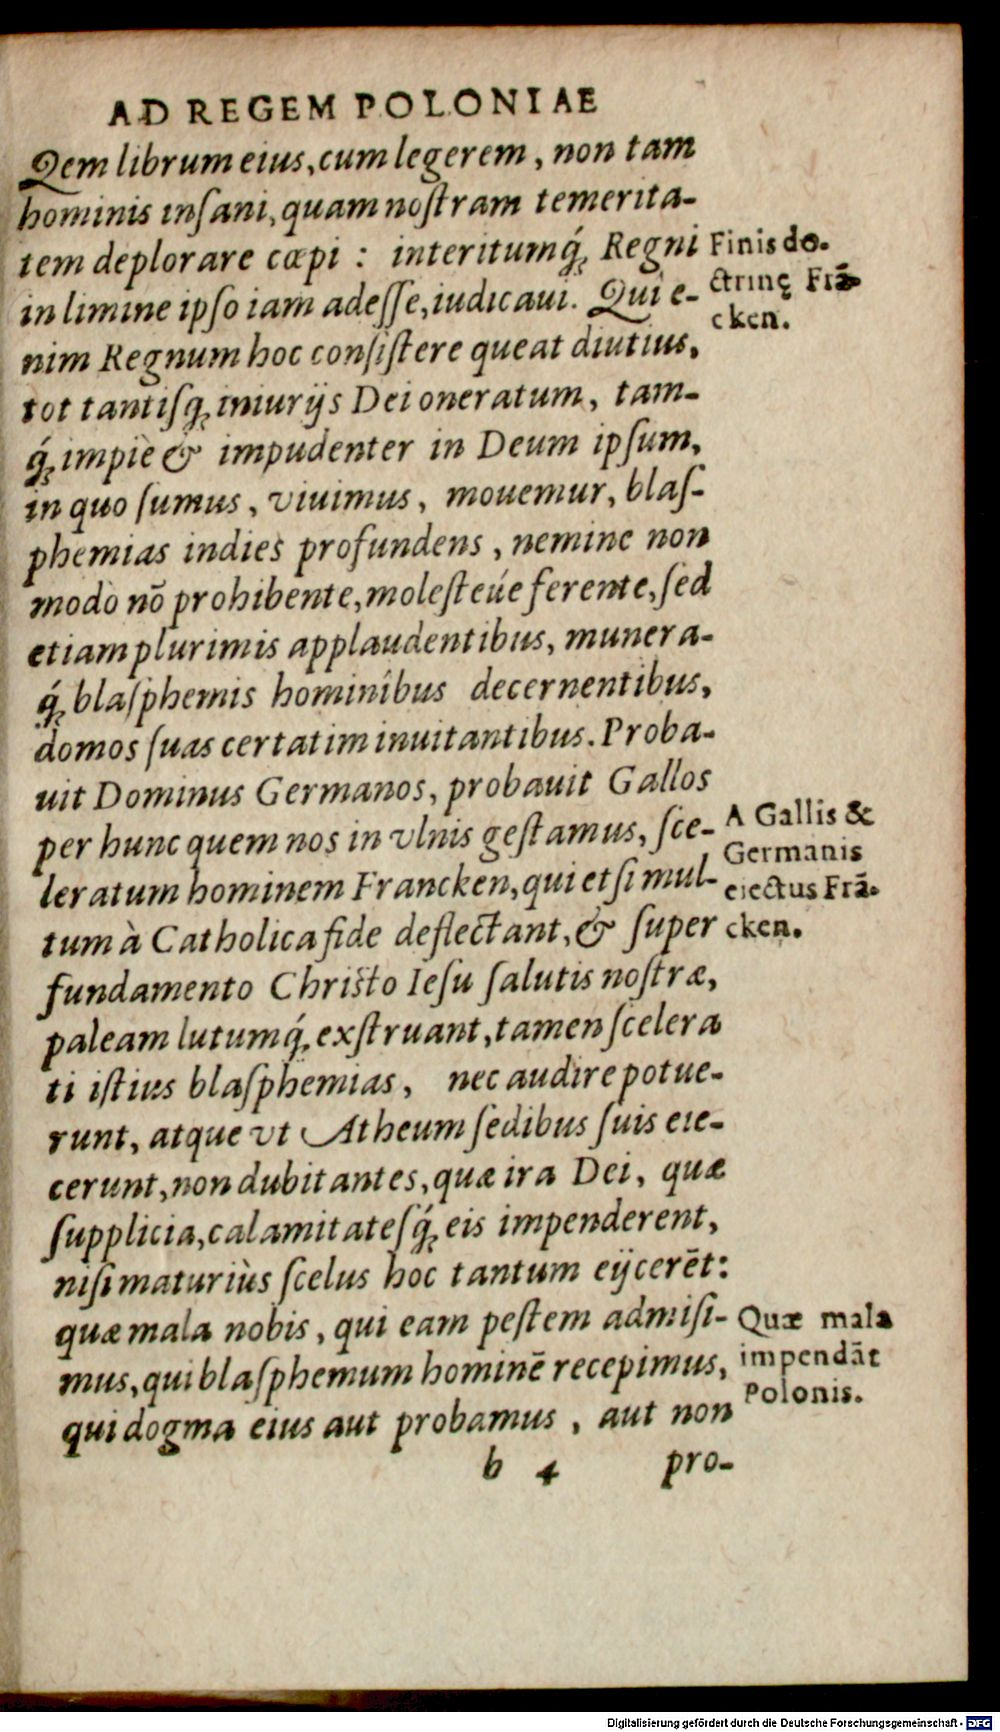 AD REGEM POLONIAE
Qem librum eius, cum legerem, non tam
hominis inſani, quam noſtram temerita-
tem deplorare cœpi : interitumq́; Regni
Finis do-
ctrinę Frā-
cken.
in limine ipſo iam adeſſe, iudicaui. Qui e-
nim Regnum hoc conſiſtere queat diutius,
tot tantiſq; iniurijs Dei oneratum, tam-
q́; impiè & impudenter in Deum ipſum,
in quo ſumus, viuimus, mouemur, blaſ-
phemias indies profundens, nemine non
modò nō prohibente, moleſteúe ferente, ſed
etiam plurimis applaudentibus, munera-
q́; blaſphemis hominibus decernentibus,
domos ſuas certatim inuitantibus. Proba-
uit Dominus Germanos, probauit Gallos
per hunc quem nos in vlnis geſtamus, ſce-
A Gallis &
Germanis
eiectus Frā-
cken.
leratum hominem Francken, qui etſi mul-
tum à Catholica fide deflectant, & ſuper
fundamento Chriſto Ieſu ſalutis noſtræ,
paleam lutumq́; exſtruant, tamen ſcelera
ti iſtius blaſphemias, nec audire potue-
runt, atque vt Atheum ſedibus ſuis eie-
cerunt, non dubitantes, quæ ira Dei, quæ
ſupplicia, calamitateſq́; eis impenderent,
niſi maturiùs ſcelus hoc tantum eijcerēt:
quæ mala nobis, qui eam peſtem admiſi-
Quæ mala
impendāt
Polonis.
mus, qui blaſphemum hominē recepimus,
qui dogma eius aut probamus, aut non
b 4 pro-
Digitalisierung gefördert durch die Deutsche Forschungsgemeinschaft - DFG